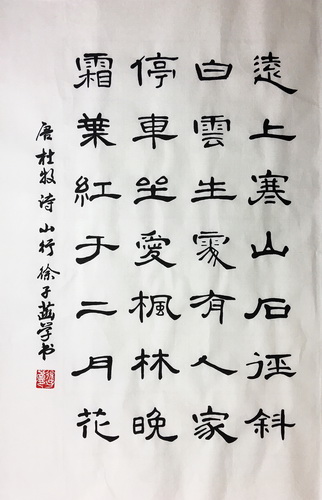 遠上寒山石徑斜
白雲生處有人家
停車坐愛楓林晚
霜葉紅于二月花
唐杜牧诗山行徐子益学书